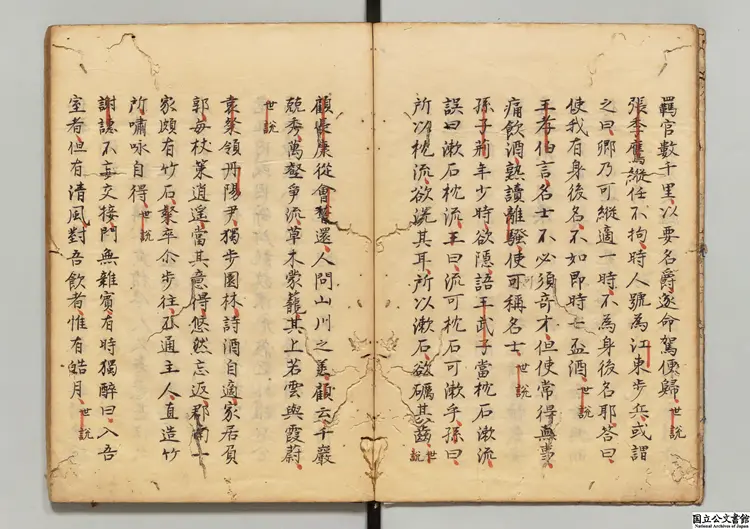 羈官數千里以要名爵遂命駕便歸世説
張季鷹縱任不拘時人號為江東步兵或謂
之曰卿乃可縱適一時不為身後名耶答曰
使我有身後名不如即時一盃酒世説
王孝伯言名士不必須奇才但使常得無事
痛飲酒熟讀離騷便可稱名士世説
孫子荊年少時欲隱語王武子當枕石漱流
誤曰漱石枕流王曰流可枕石可漱乎孫曰
所以枕流欲洗其耳所以漱石欲礪其齒世説
顧長康從會稽還人問山川之美顧云千巖
競秀萬壑爭流草木蒙蘢其上若雲興霞蔚
世説
袁粲領丹陽尹獨步園林詩酒自適家居負
郭每杖策逍遙當其意得悠然忘返郡南一
家頗有竹石粲率尒步往不通主人直造竹
所嘯咏自得世説
謝譓不妄交接門無雜賓有時獨醉曰入吾
室者但有清風對吾飲者惟有皓月世説
国立公文書館
National Archives of Japan